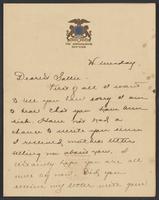 Wednesday
Dearest Sallie:
First of all I want
to tell you how sorry I am
to hear that you have been
sick. Have not had a
chance to write you since
I received mothers letter
telling me about you. I
certainly hope you are all
over it now. Did you
receive my letter with your